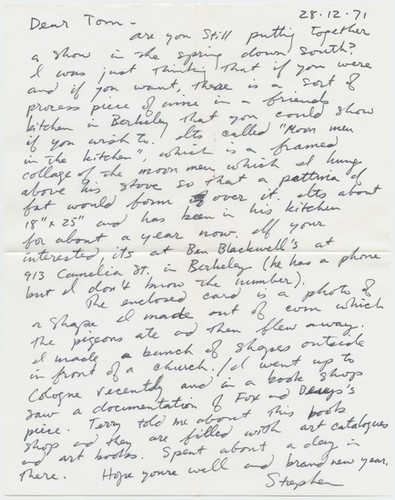 28·12·71
Dear Tom -
are you still putting together
a show in the spring down south?
I was just thinking that if you were
and if you want, there is a sort of
process piece of mine in a friends
kitchen in Berkeley that you could show
if you wish to. Its called "Moon men
in the kitchen", which is a framed
collage of the moon men which I hung
above his stove so that a pettina of
fat would form over it. Its about
18" x 25" and has been in his kitchen
for about a year now. If your
interested its at Ben Blackwell's at
913 Camelia St. in Berkeley (he has a phone
but I don't know the number).
The enclosed card is a photo of
a shape I made out of corn which
the pigeons ate and then flew away.
I made a bunch of shapes outside
in front of a church. I went up to
Cologne recently and in a book shop
saw a documentation of Fox and Beuys's
piece. Terry told me about this book
shop and they are filled with art catalogues
and art books. Spent about a day in
there. Hope youre well and brand new year.
Stephen